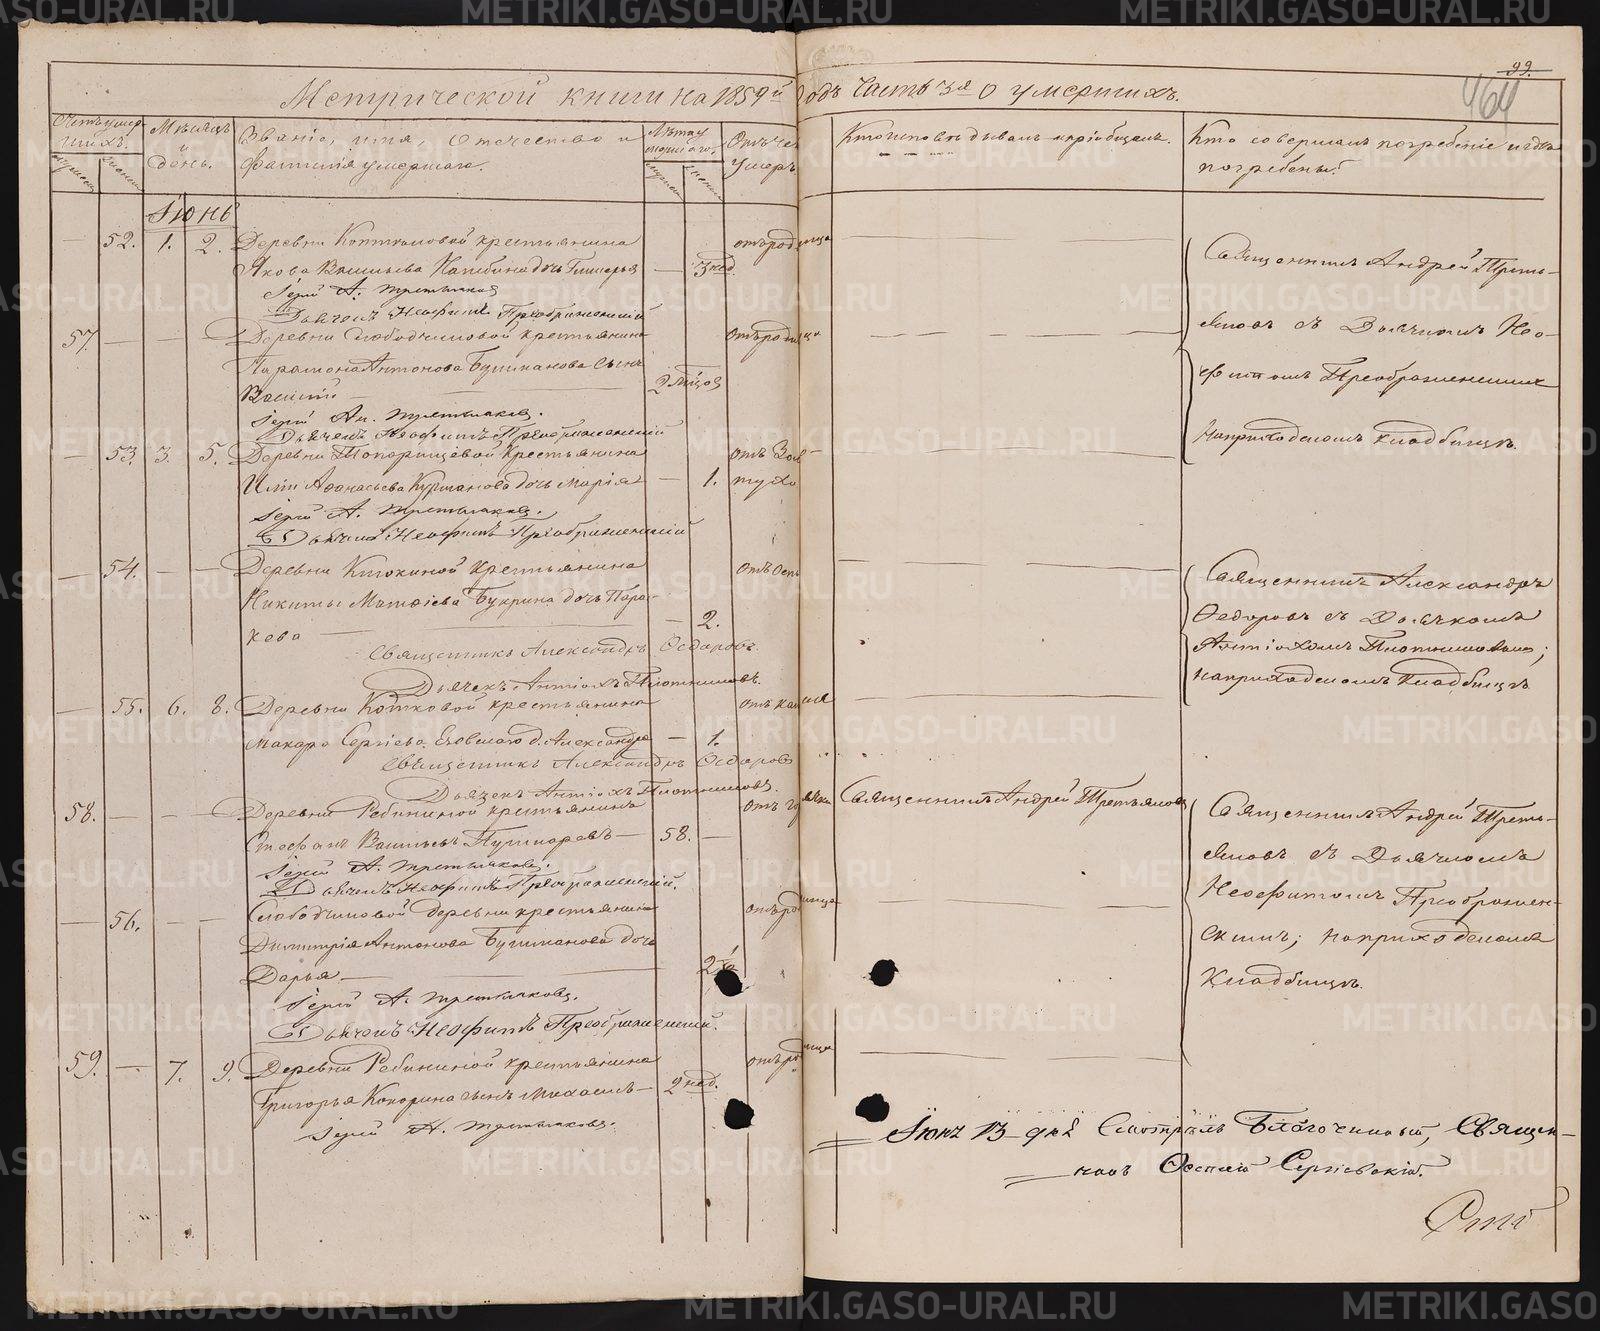 Метрической книги на 1859й годъ Часть 3я О умершихъ.
99.
464
Счетъ умершихъ.
Мѣсяцъ и день.
Званіе, имя, отечество и фамилія умершаго.
Лѣта умершаго.
Отъ чего умеръ
Кто исповѣдывалъ и пріобщалъ.
Кто совершалъ погребеніе и гдѣ погребены.
Іюнь
52. 1. 2. Деревни Коптяковой крестьянина отъ родимца
Якова Васильева дочь Гликерья — 3 нед.
Іерей А. Третьяковъ
Дьячекъ Неофитъ Преображенскій
Священникъ Андрей Треть-
яковъ съ Дьячкомъ Нео-
фитомъ Преображенскимъ
на приходскомъ кладбищѣ.
57. — — — Деревни Слободчиковой крестьянина отъ родимца
Парамона Антонова Бушманова сынъ
Василій — 2 мѣсяцов
Іерей Ан. Третьяковъ.
Дьячекъ Неофитъ Преображенскій
— 53. 3. 5. Деревни Топорищевой крестьянина отъ Золотухи
Иліи Афанасьева Курманова дочь Марія — 1.
Іерей А. Третьяковъ.
Дьячекъ Неофитъ Преображенскій
— 54. — — Деревни Клюкиной крестьянина отъ оспы
Никиты Матѳіева Букрина дочь Парас-
кева — 2.
Священникъ Александръ Ѳедоровъ.
Дьячекъ Антіохъ Плотниковъ.
Священникъ Александръ
Ѳедоровъ съ Дьячкомъ
Антіохомъ Плотниковымъ;
на приходскомъ кладбищѣ
— 55. 6. 8. Деревни Котковой крестьянина отъ кашля
Макара Сергіева д. Александра — 1.
Священникъ Александръ Ѳедоровъ
Дьячекъ Антіохъ Плотниковъ.
58. — — — Деревни Ребининой крестьянинъ отъ горячки Священникъ Андрей Третьяковъ
Стефанъ Васильевъ Пушкаревъ — 58. —
Іерей А. Третьяковъ.
Дьячекъ Неофитъ Преображенскій.
Священникъ Андрей Треть-
яковъ съ Дьячкомъ
Неофитомъ Преображен-
скимъ; на приходскомъ
кладбищѣ.
— 56. — — Слободчиковой деревни крестьянина отъ родимца
Димитрія Антонова Бушманова дочь
Дарья — 2
Іерей А. Третьяковъ.
Дьячекъ Неофитъ Преображенскій.
59. — 7. 9. Деревни Ребининой крестьянина отъ родимца
Григорья Кокорина сынъ Михаилъ — 2 нед.
Іерей А. Третьяковъ.
Іюня 13 дня Смотрѣлъ Благочинный, Священ-
никъ Сергіевскій.
METRIKI.GASO-URAL.RU